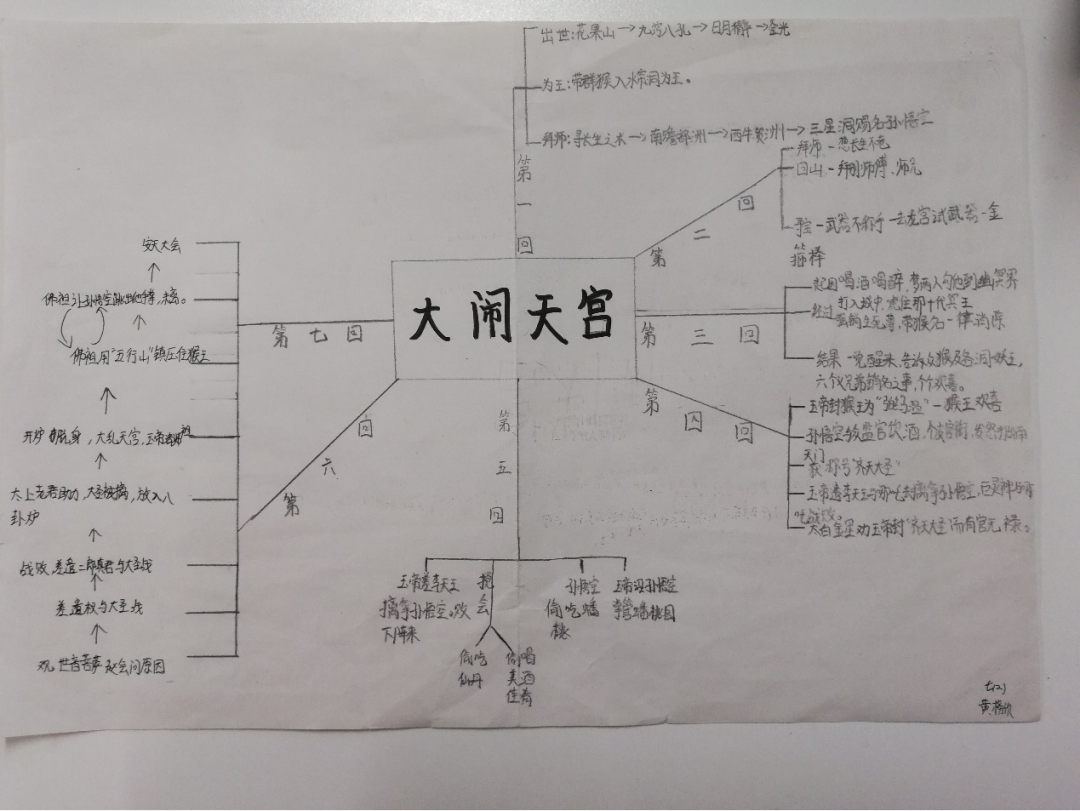 大闹天宫
第一回
出世:花果山→九窍八孔→日月精华→金光
为王:带群猴入水帘洞为王。
拜师:寻长生之术→南赡部洲→西牛贺洲→三星洞赐名孙悟空
第二回
拜师-想长生不老
回山-拜别师傅、师兄
武器不称手-去龙宫试武器-金
箍棒
第三回
起因 喝酒喝醉,梦两人勾他到幽冥界
经过 打入城中,
生死簿,带猴名一律消除
结果一觉醒来,告诉众猴及各洞妖王,
六个兄弟销名之事,个个欢喜。
第四回
玉帝封猴王为“弼马温”-猴王欢喜
孙悟空
天门
获称号“齐天大圣”
玉帝差李天王与哪吒去擒拿孙悟空,巨灵神与哪
吒战败。
太白金星劝玉帝封“齐天大圣”而有官无禄。
第五回
玉帝差李天王
擒拿孙悟空。败
下阵来
搅会
偷吃
仙丹
偷喝
美酒
佳肴
孙悟空
偷吃蟠
桃
玉帝派孙悟空
掌管蟠桃园
第六回
第七回
安天大会
佛祖让孙悟空
佛祖用“五行山”镇压住猴王
开炉 脱身,大乱天宫,玉帝
太上老君助力,大圣被擒,放入八
卦炉
战败,差遣二郎真君与大圣战
差遣 与大圣战
观世音菩萨赴会问原因
七(2)